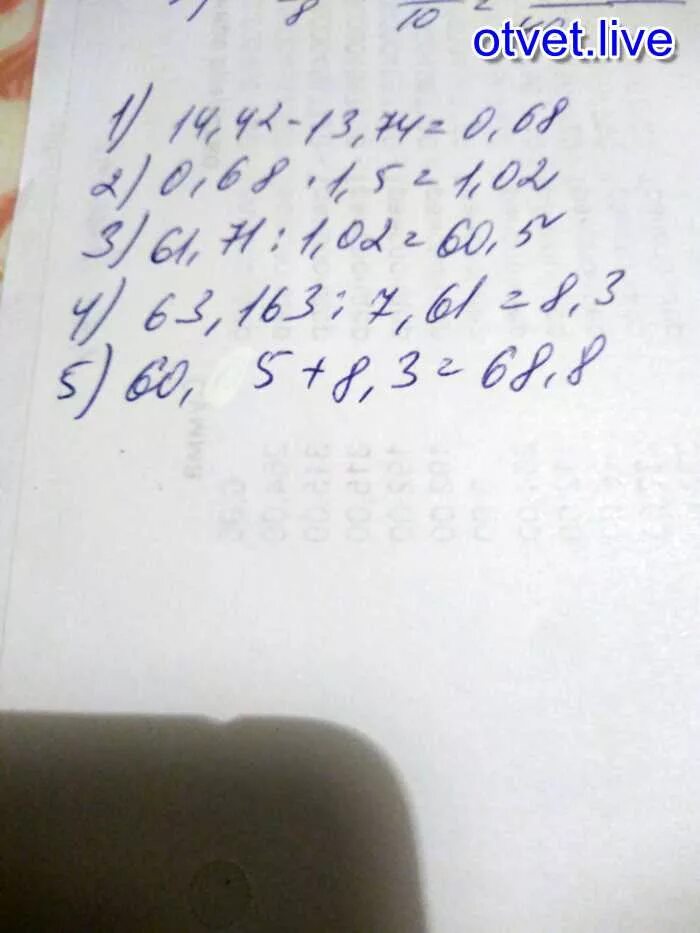 otvet.live
8 10 =
1) 14,42 - 13,74 = 0,68
2) 0,68 · 1,5 = 1,02
3) 61,71 : 1,02 = 60,5
4) 63,163 : 7,61 = 8,3
5) 60, 5 + 8,3 = 68,8